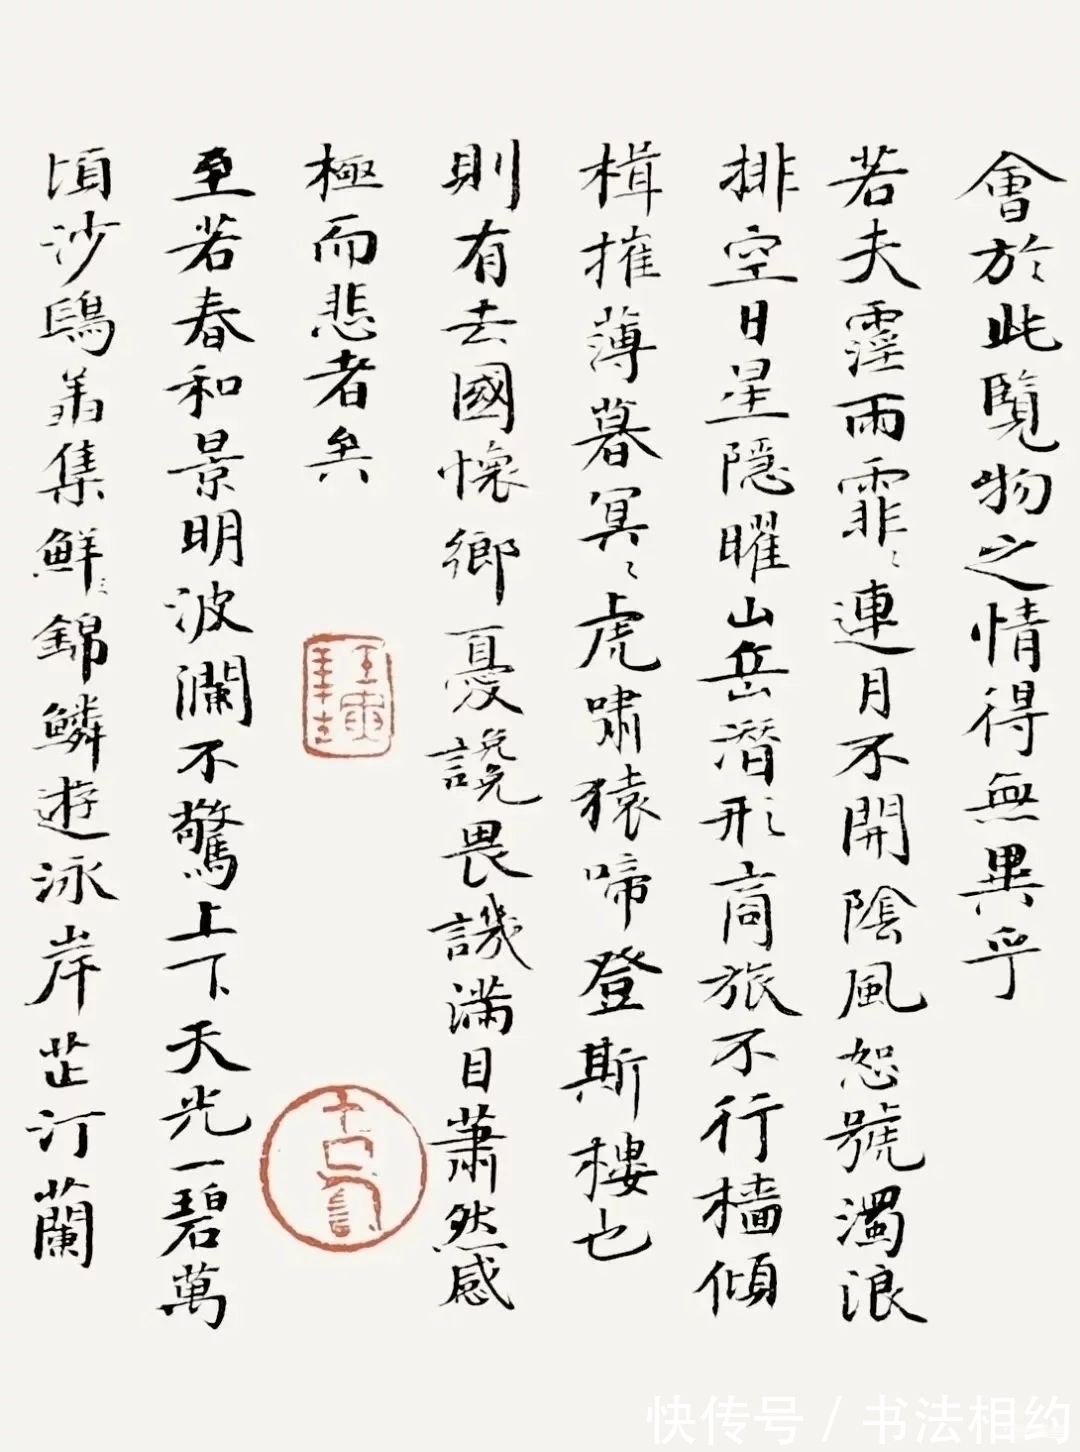 會於此覽物之情得無異乎
若夫霪雨霏〻連月不開陰風怒號濁浪
排空日星隱曜山岳潛形商旅不行檣傾
楫摧薄暮冥〻虎嘯猿啼登斯樓也
則有去國懷鄉憂讒畏譏滿目蕭然感
極而悲者矣
至若春和景明波瀾不驚上下天光一碧萬
頃沙鷗翔集鮮〻錦鱗遊泳岸芷汀蘭
快传号 / 书法相约